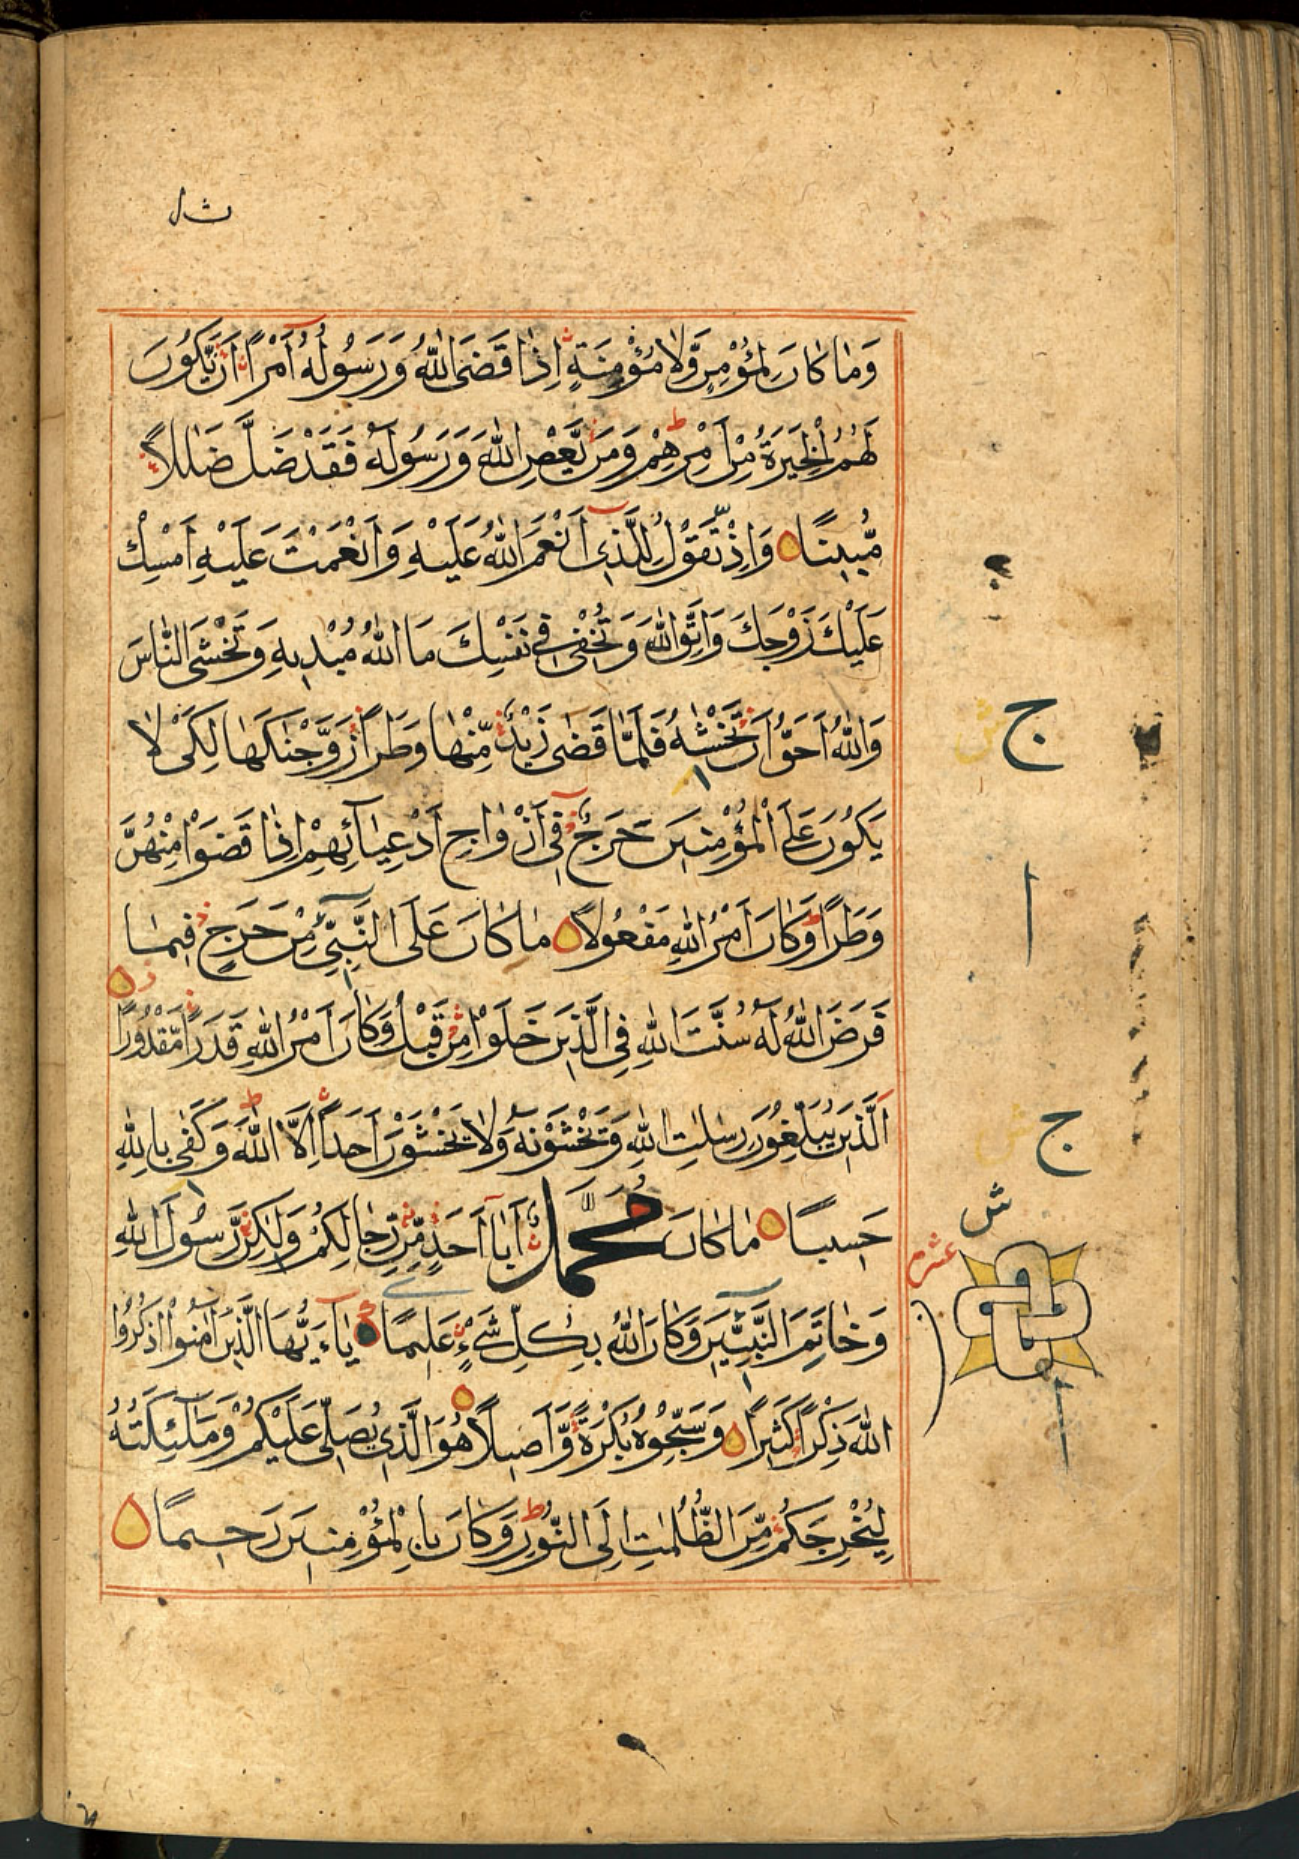 وَمَا كَانَ لِمُؤْمِنٍ وَّلَا مُؤْمِنَةٍ اِذَا قَضَى اللّٰهُ وَرَسُوْلُهٗ اَمْرًا اَنْ يَّكُوْنَ
لَهُمُ الْخِيَرَةُ مِنْ اَمْرِهِمْ ط وَمَنْ يَّعْصِ اللّٰهَ وَرَسُوْلَهٗ فَقَدْ ضَلَّ ضَلٰلًا
مُّبِيْنًا وَاِذْ تَقُوْلُ لِلَّذِيْ اَنْعَمَ اللّٰهُ عَلَيْهِ وَاَنْعَمْتَ عَلَيْهِ اَمْسِكْ
عَلَيْكَ زَوْجَكَ وَاتَّقِ اللّٰهَ وَتُخْفِيْ فِيْ نَفْسِكَ مَا اللّٰهُ مُبْدِيْهِ وَتَخْشَى النَّاسَ
وَاللّٰهُ اَحَقُّ اَنْ تَخْشٰهُ فَلَمَّا قَضٰى زَيْدٌ مِّنْهَا وَطَرًا زَوَّجْنٰكَهَا لِكَيْ لَا
يَكُوْنَ عَلَى الْمُؤْمِنِيْنَ حَرَجٌ فِيْ اَزْوَاجِ اَدْعِيَآئِهِمْ اِذَا قَضَوْا مِنْهُنَّ
وَطَرًا ط وَكَانَ اَمْرُ اللّٰهِ مَفْعُوْلًا مَا كَانَ عَلَى النَّبِيِّ مِنْ حَرَجٍ فِيْمَا
فَرَضَ اللّٰهُ لَهٗ سُنَّتَ اللّٰهِ فِي الَّذِيْنَ خَلَوْا مِنْ قَبْلُ وَكَانَ اَمْرُ اللّٰهِ قَدَرًا مَّقْدُوْرًا
اَلَّذِيْنَ يُبَلِّغُوْنَ رِسٰلٰتِ اللّٰهِ وَيَخْشَوْنَهٗ وَلَا يَخْشَوْنَ اَحَدًا اِلَّا اللّٰهَ ط وَكَفٰى بِاللّٰهِ
حَسِيْبًا مَا كَانَ مُحَمَّدٌ اَبَا اَحَدٍ مِّنْ رِّجَالِكُمْ وَلٰكِنْ رَّسُوْلَ اللّٰهِ
وَخَاتِمَ النَّبِيّٖنَ وَكَانَ اللّٰهُ بِكُلِّ شَيْءٍ عَلِيْمًا يَاءَيُّهَا الَّذِيْنَ اٰمَنُوا اذْكُرُوا
اللّٰهَ ذِكْرًا كَثِيْرًا وَسَبِّحُوْهُ بُكْرَةً وَّاَصِيْلًا هُوَ الَّذِيْ يُصَلِّيْ عَلَيْكُمْ وَمَلٰٓئِكَتُهٗ
لِيُخْرِجَكُمْ مِّنَ الظُّلُمٰتِ اِلَى النُّوْرِ ط وَكَانَ بِالْمُؤْمِنِيْنَ رَحِيْمًا
ج
ش
ا
ج
ش
ش